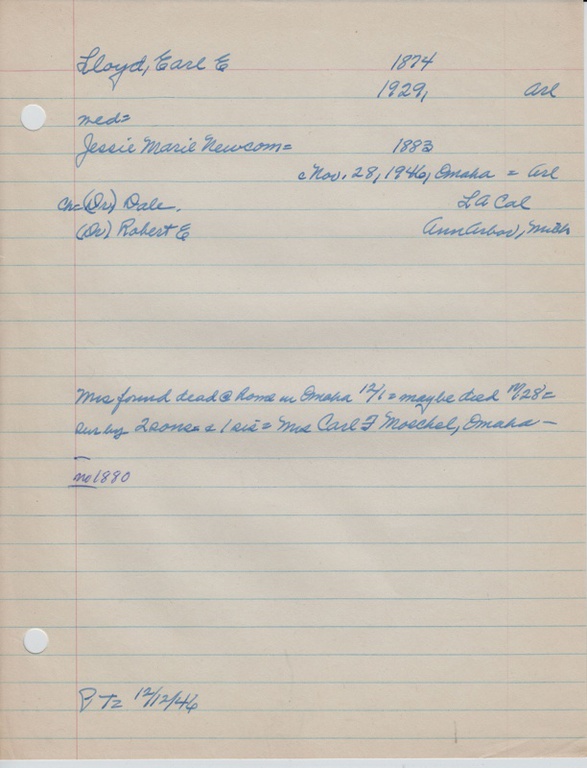 Lloyd, Earl E 1874
1929, Arl
med=
Jessie Marie Newcom= 1883
c Nov. 28, 1946, Omaha = Arl
Ch= (Dr) Dale. LA Cal
(Dr) Robert E Ann Arbor, Mich
Mrs found dead @ home in Omaha 12/1 = maybe died 11/28 =
sur by 2 sons = & 1 sis = Mrs Carl F Moschel, Omaha -
no 1880
P T= 12/12/46